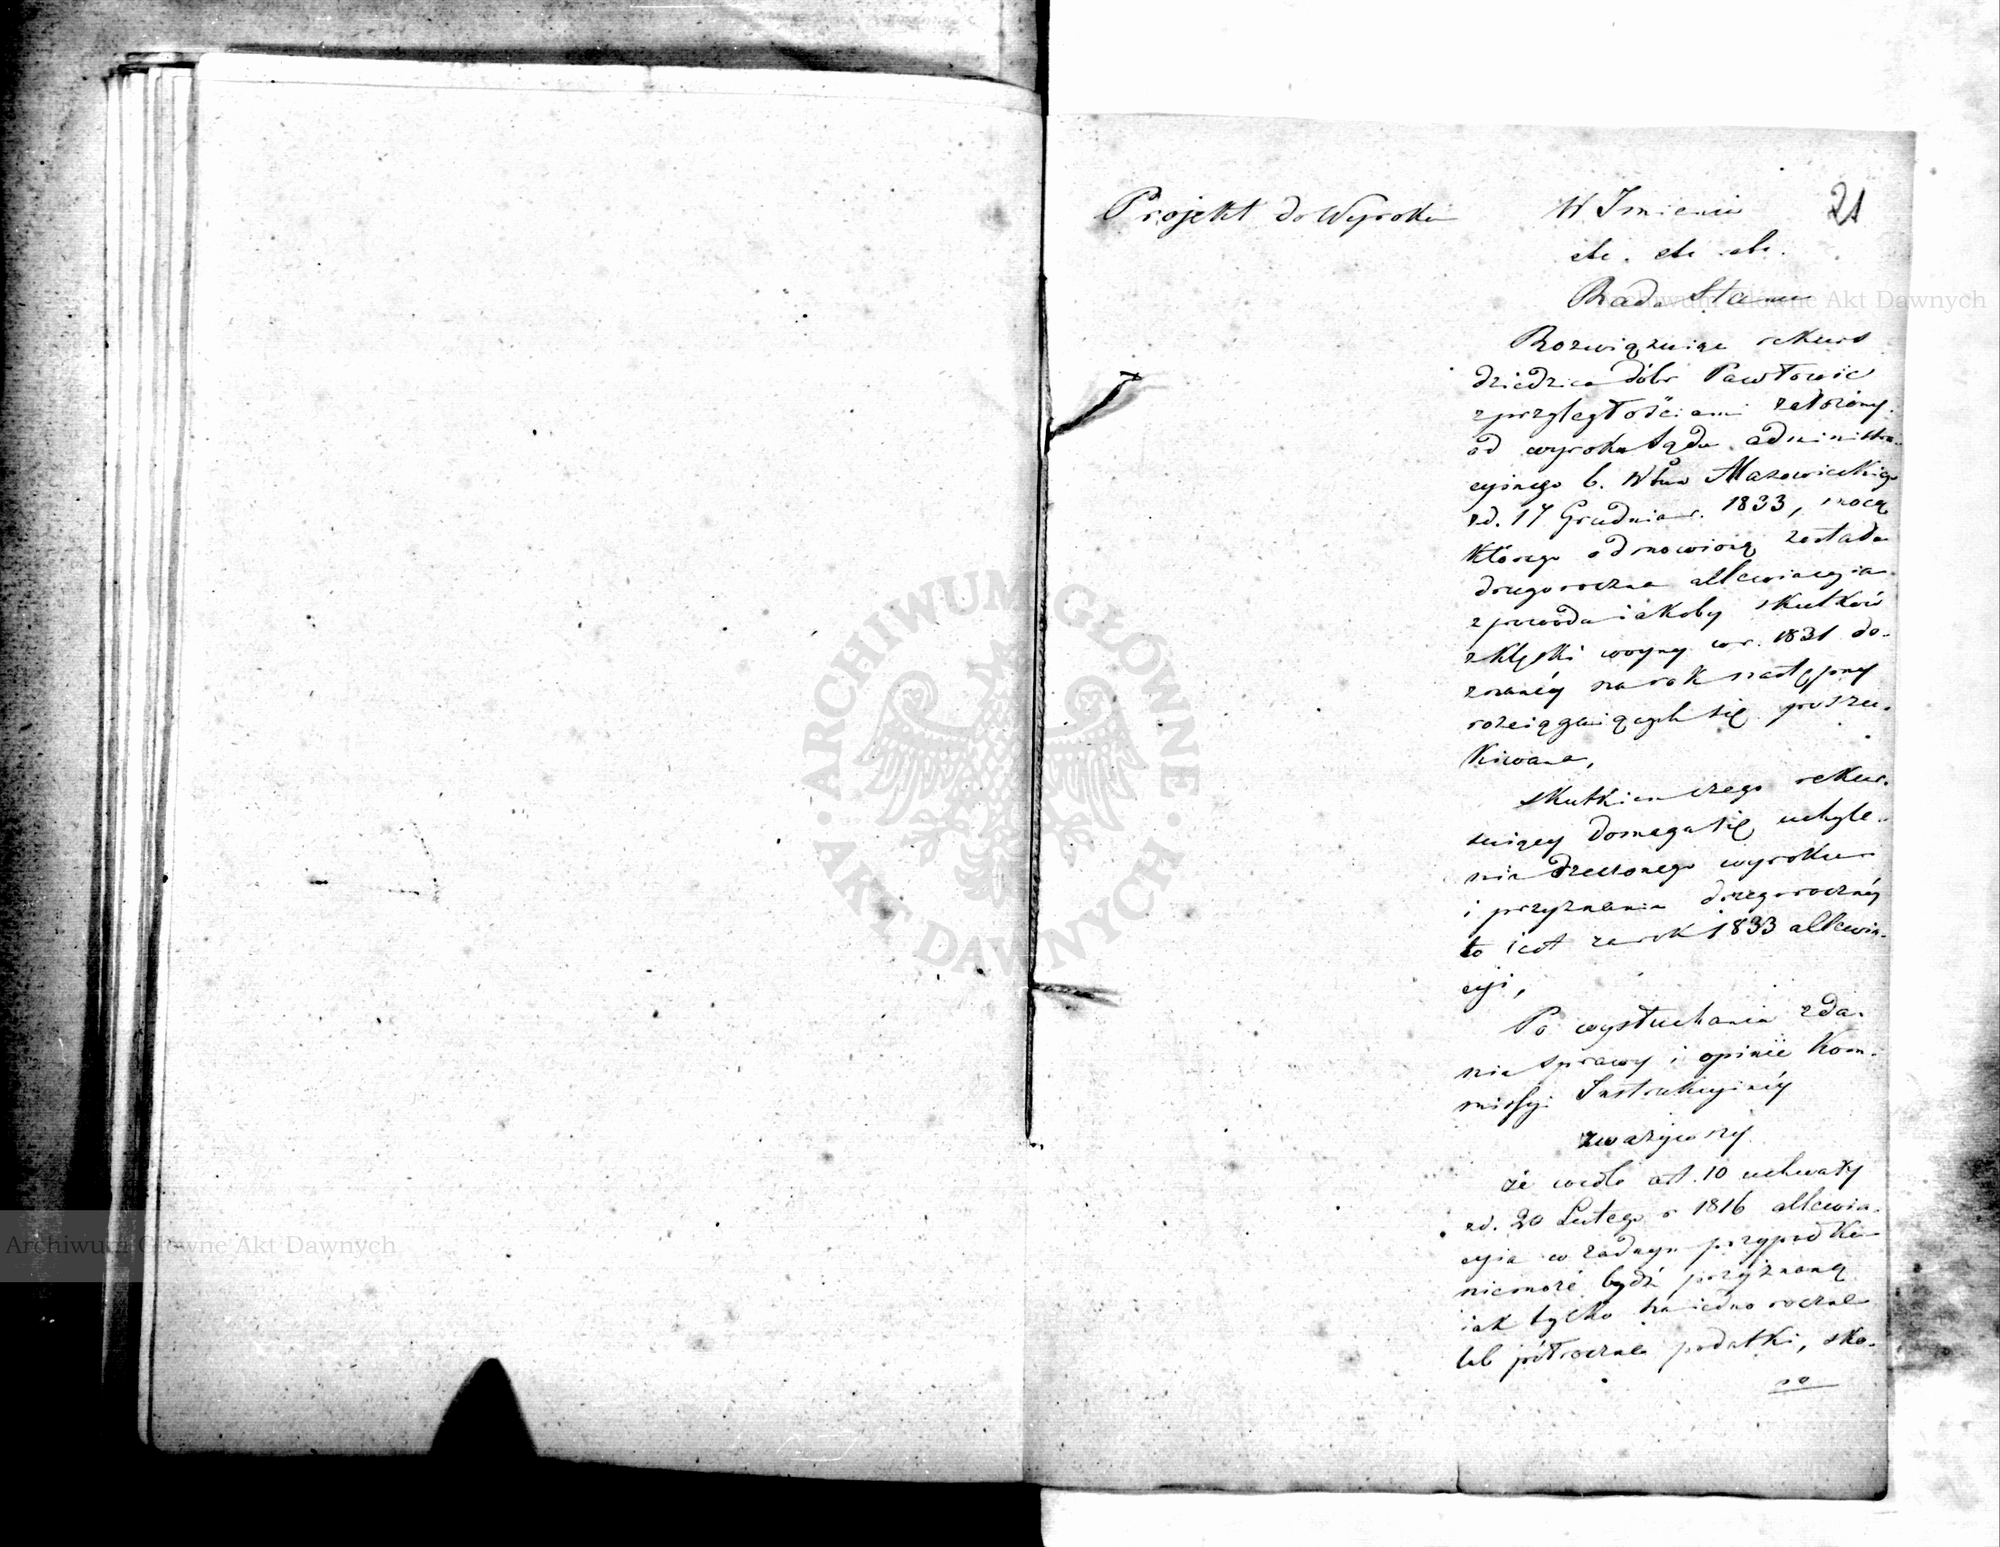 Projekt do Wyroku
W Imieniu
21
etc. etc. etc.
Rada Stanu
Rozwiązuiąc rekurs
dziedzica dóbr Pawłowic
z przyległościami założony
od wyroku Sądu administra-
cyjnego b. Wtwa Mazowieckiego
z d. 17 Grudnia r. 1833, mocą
którego odmowioną została
drugoroczna allewiacyia
z powodu iakoby skutków
z klęski woyny w r. 1831 do-
znanéy na rok następny
rozciągaiących się poszu-
kiwana,
skutkiem czego rekur-
suiący domaga się uchyle-
nia rzeczonego wyroku
i przyznania drugorocznéy
to iest za rok 1833 allewia-
cyi,
Po wysłuchaniu zda-
nia sprawy i opinii Kom-
missyi Instrukcyinéy
zważywszy
że wedle art. 10 uchwały
z d. 20 Lutego r 1816 allewia-
cyia w żadnym przypadku
niemoże bydź przyznaną
iak tylko na iedno roczne
lub półroczne podatki, sko-
ro
ARCHIWUM GŁÓWNE AKT DAWNYCH
Archiwum Główne Akt Dawnych
Archiwum Główne Akt Dawnych